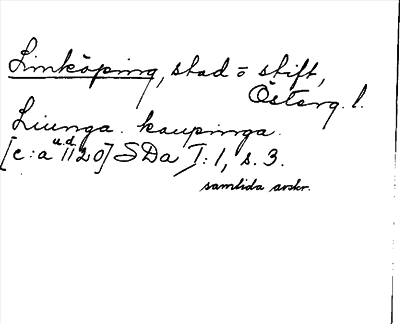 Linköping, stad o stift,
Österg. l.
Liunga. kaupinga.
u.d.
[c:a 1120] SDa I:1, s. 3.
samtida avskr.